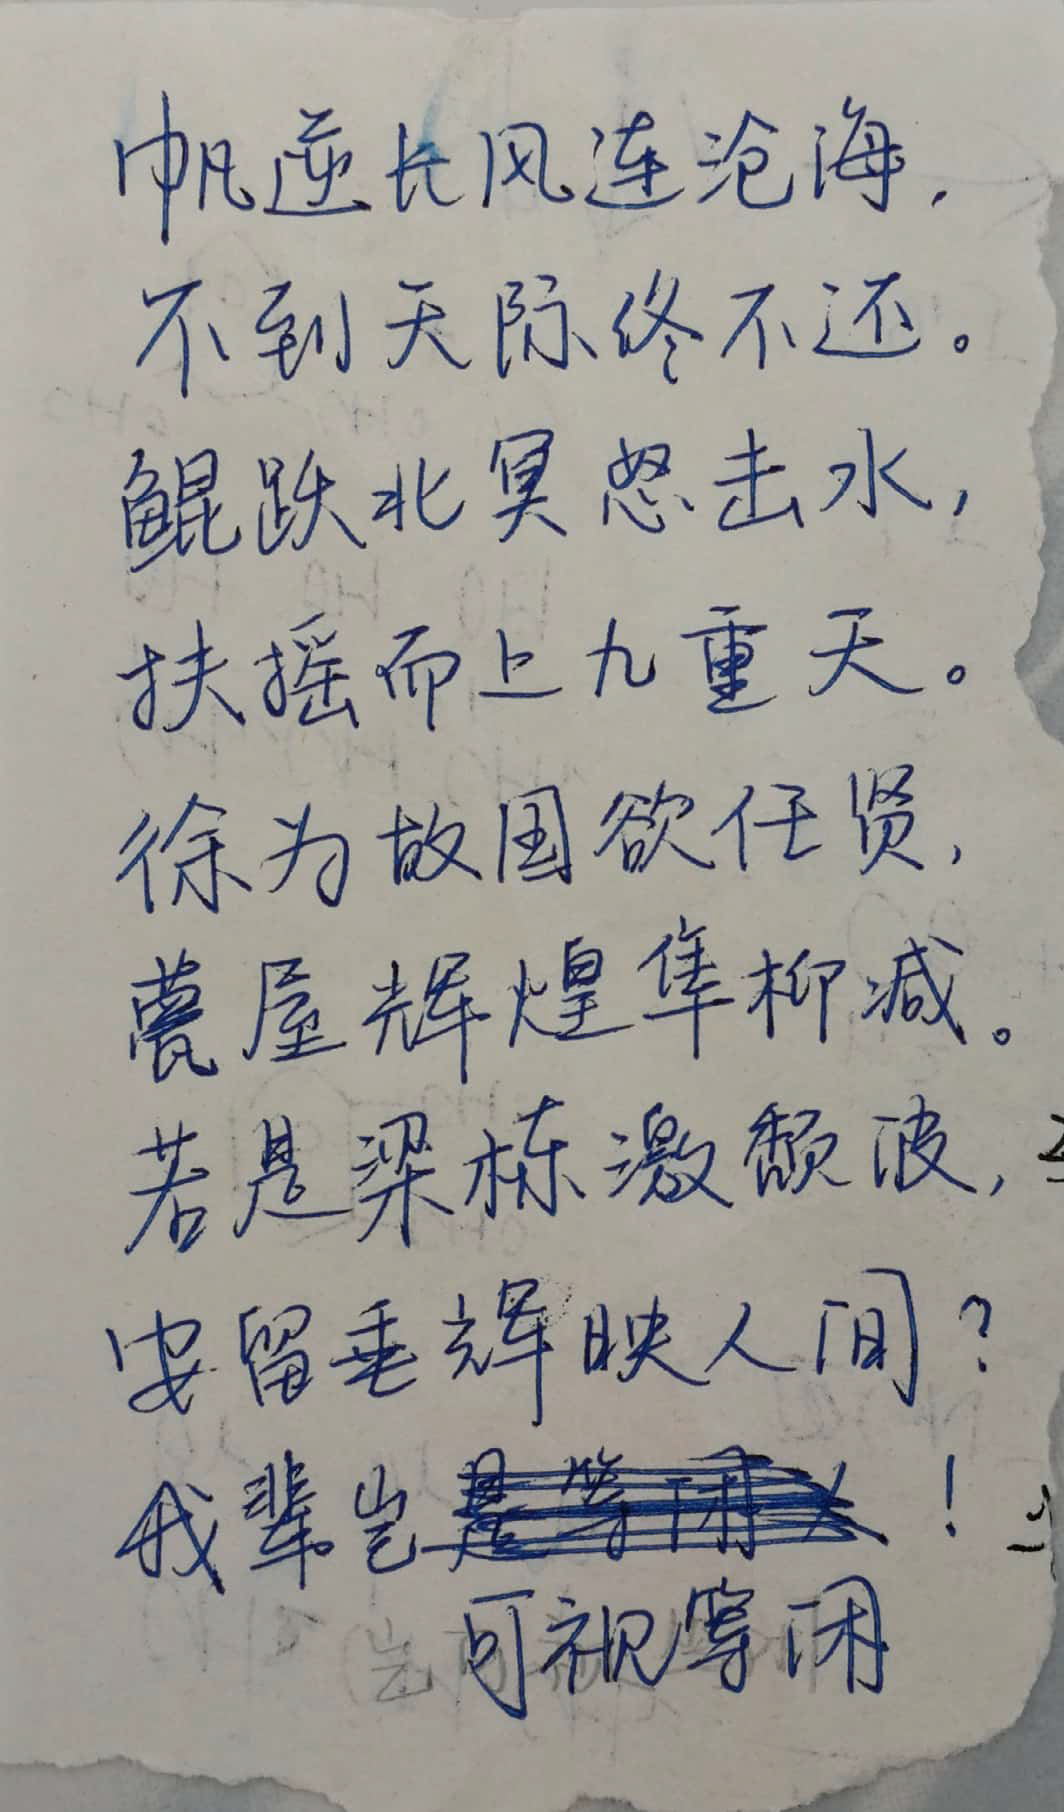 帆逆长风连沧海，
不到天际终不还。
鲲跃北冥怒击水，
扶摇而上九重天。
徐为故国欲任贤，
甍屋辉煌隼柳减。
若是梁栋激颓波，
安留垂辉映人间？
我辈岂是等闲人！
可视等闲